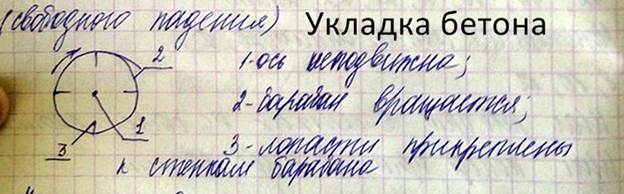 (свободного падения) Укладка бетона
1-ось неподвижна;
2-барабан вращается;
3-лопасти прикреплены
к стенкам барабана
2
1
3